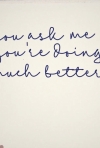 ou ask me
ou're doing
much better